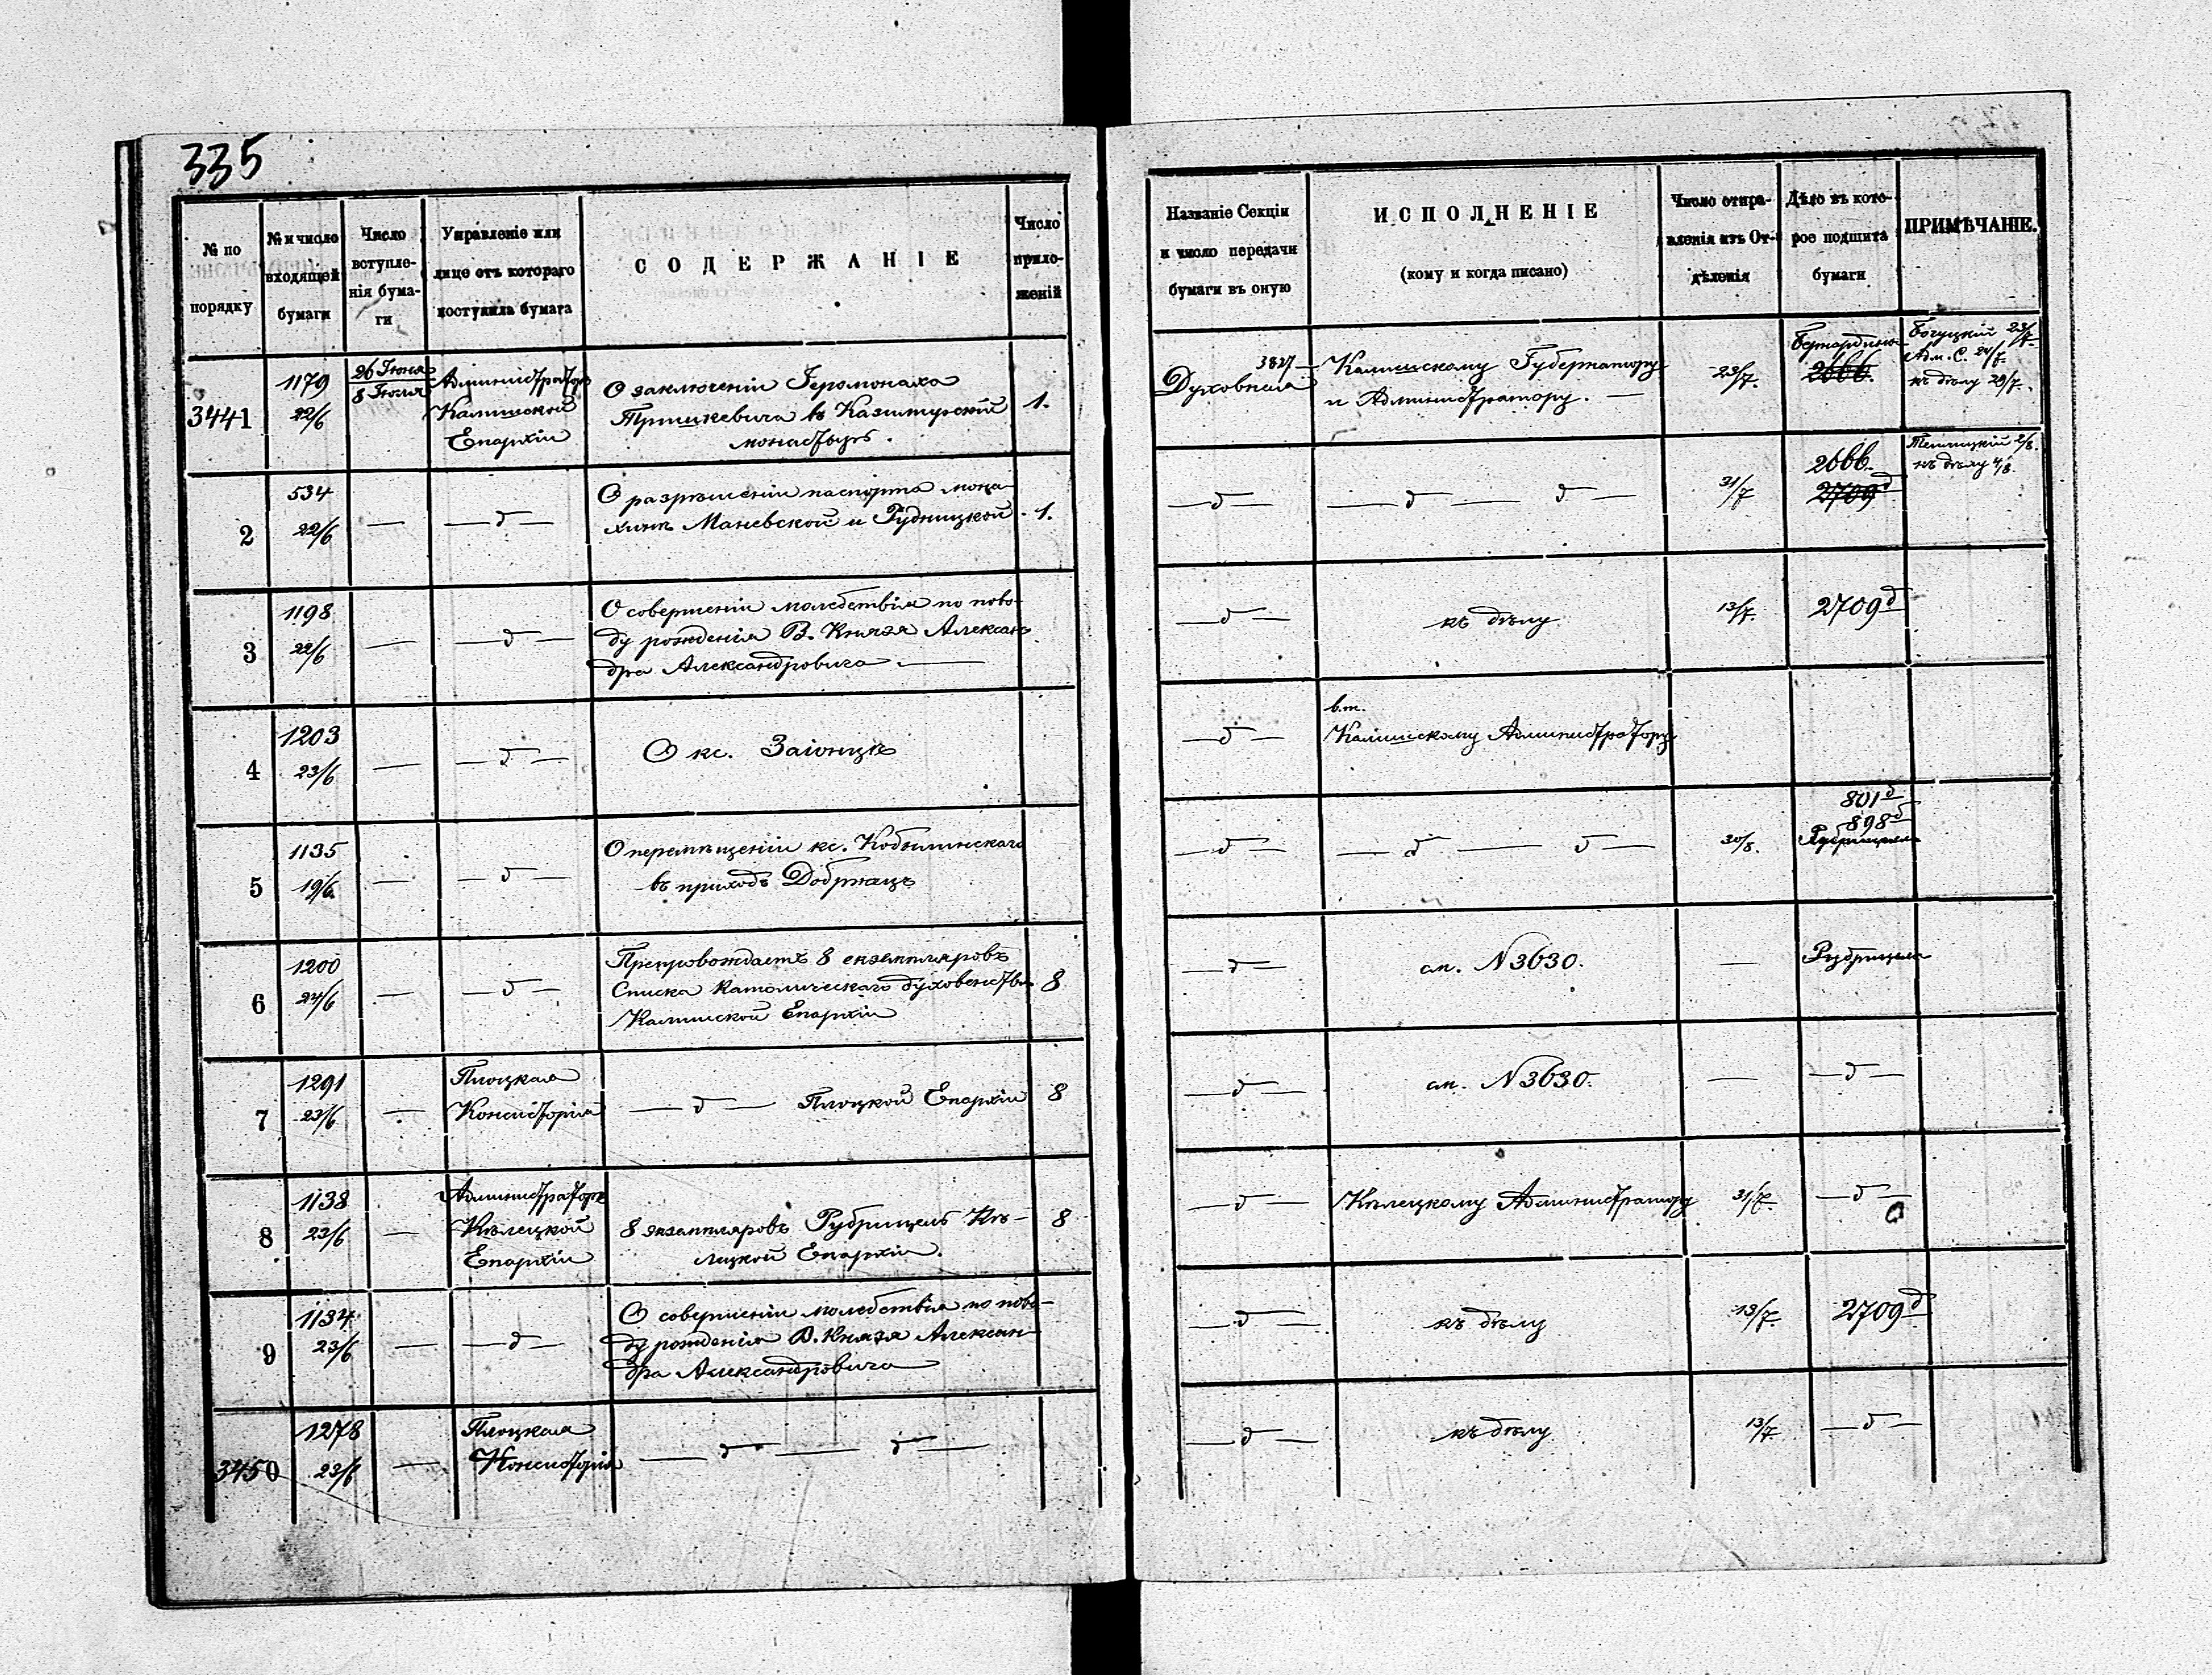 335
№ по порядку
№ и число входящей бумаги
Число вступленія бумаги
Управленіе или лице отъ котораго поступила бумага
СОДЕРЖАНІЕ
Число приложеній
Названіе Секціи и число передачи бумаги въ оную
ИСПОЛНЕНІЕ
(кому и когда писано)
Число отправленія изъ Отдѣленія
Дѣло въ которое подшита бумаги
ПРИМѢЧАНІЕ.
3441
1179
22/6
26 Іюня
8 Іюля
Администраторъ
Калишской
Епархіи
О заключеніи Іеромонаха
Тришкевича въ Казимурскій
монастырь.
1.
3827
Духовная
Калишскому Губернатору
и Администратору. —
23/7.
2666.
Богуцкій 23/7.
Адм. С. 24/7.
къ дѣлу 29/7.
2
534
22/6
—
— д —
О разрѣшеніи паспорта мона-
хинь Маневской и Рудницкой.
1.
— д —
— д — д —
31/7
2666.
2709 д
къ дѣлу 4/8.
3
1198
22/6
—
— д —
О совершеніи молебствія по пово-
ду рожденія В. Князя Алексан-
дра Александровича. —
— д —
къ дѣлу
13/7.
2709 д
4
1203
23/6
—
— д —
О кс. Заіонцѣ
— д —
в.т.
Калишскому Администратору
5
1135
19/6.
—
— д —
О перемѣщеніи кс. Кобылинскаго
въ приходъ Добржецъ
— д —
— д — д —
30/8.
801 д
898 д
Рубрицела
6
1200
24/6
—
— д —
Препровождаетъ 8 екземпляровъ
Списка Католическаго духовенства
Калишской Епархіи
8
— д —
см. N 3630.
—
Рубрицела
7
1291
23/6
—
Плоцкая
Консисторія
— д — Плоцкой Епархіи
8
— д —
см. N 3630.
—
— д —
8
1138
23/6
—
Администраторъ
Кѣлецкой
Епархіи
8 экземпляровъ Рубрицелъ Кѣ-
лецкой Епархіи.
8
— д —
Кѣлецкому Администратору
31/7.
— д —
9
1134
23/6
—
— д —
О совершеніи молебствія по пово-
ду рожденія В. Князя Алексан-
дра Александровича
— д —
къ дѣлу
13/7
2709 д
3450
1278
23/6
—
Плоцкая
Консисторія
— д — д —
— д —
къ дѣлу
13/7
— д —